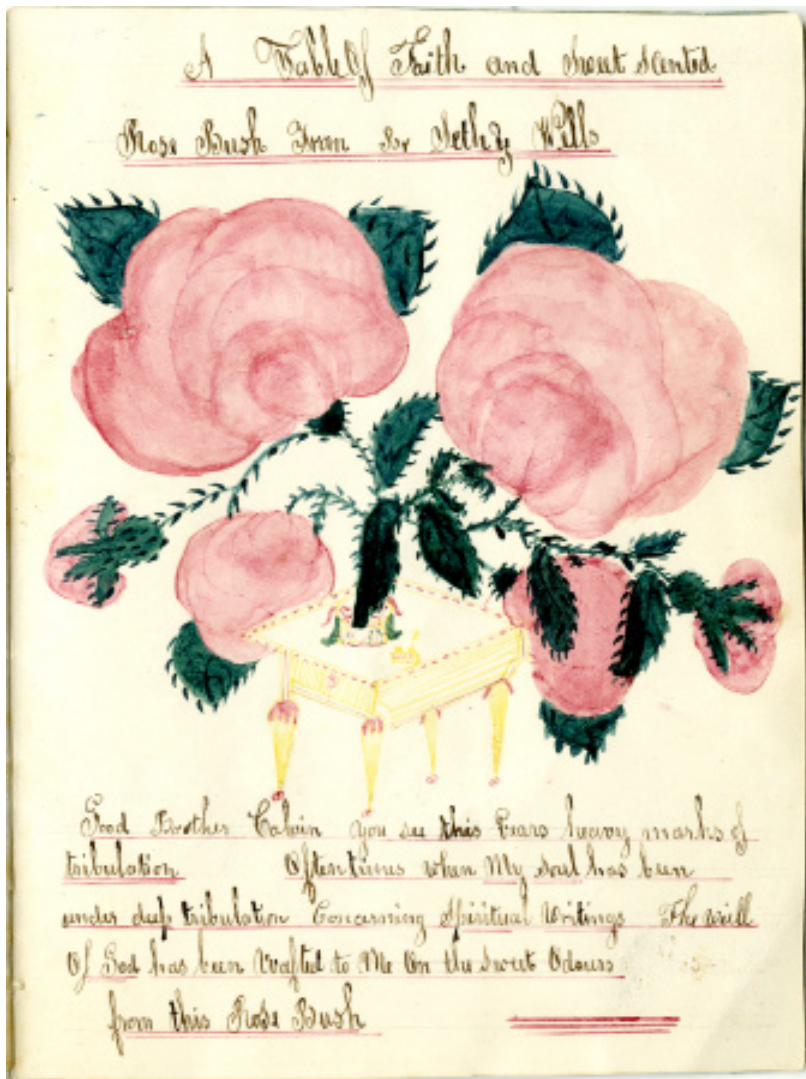 A Table Of Faith and Sweet Scented
Rose Bush From Br Seth Y Wells
Good Brother Calvin you see this Bears heavy marks of
tribulation Oftentimes when My Soul has been
under deep tribulation Concarning Spiritual Writings The will
Of God has been Wafted to Me On the Sweet Odours
from this Rose Bush